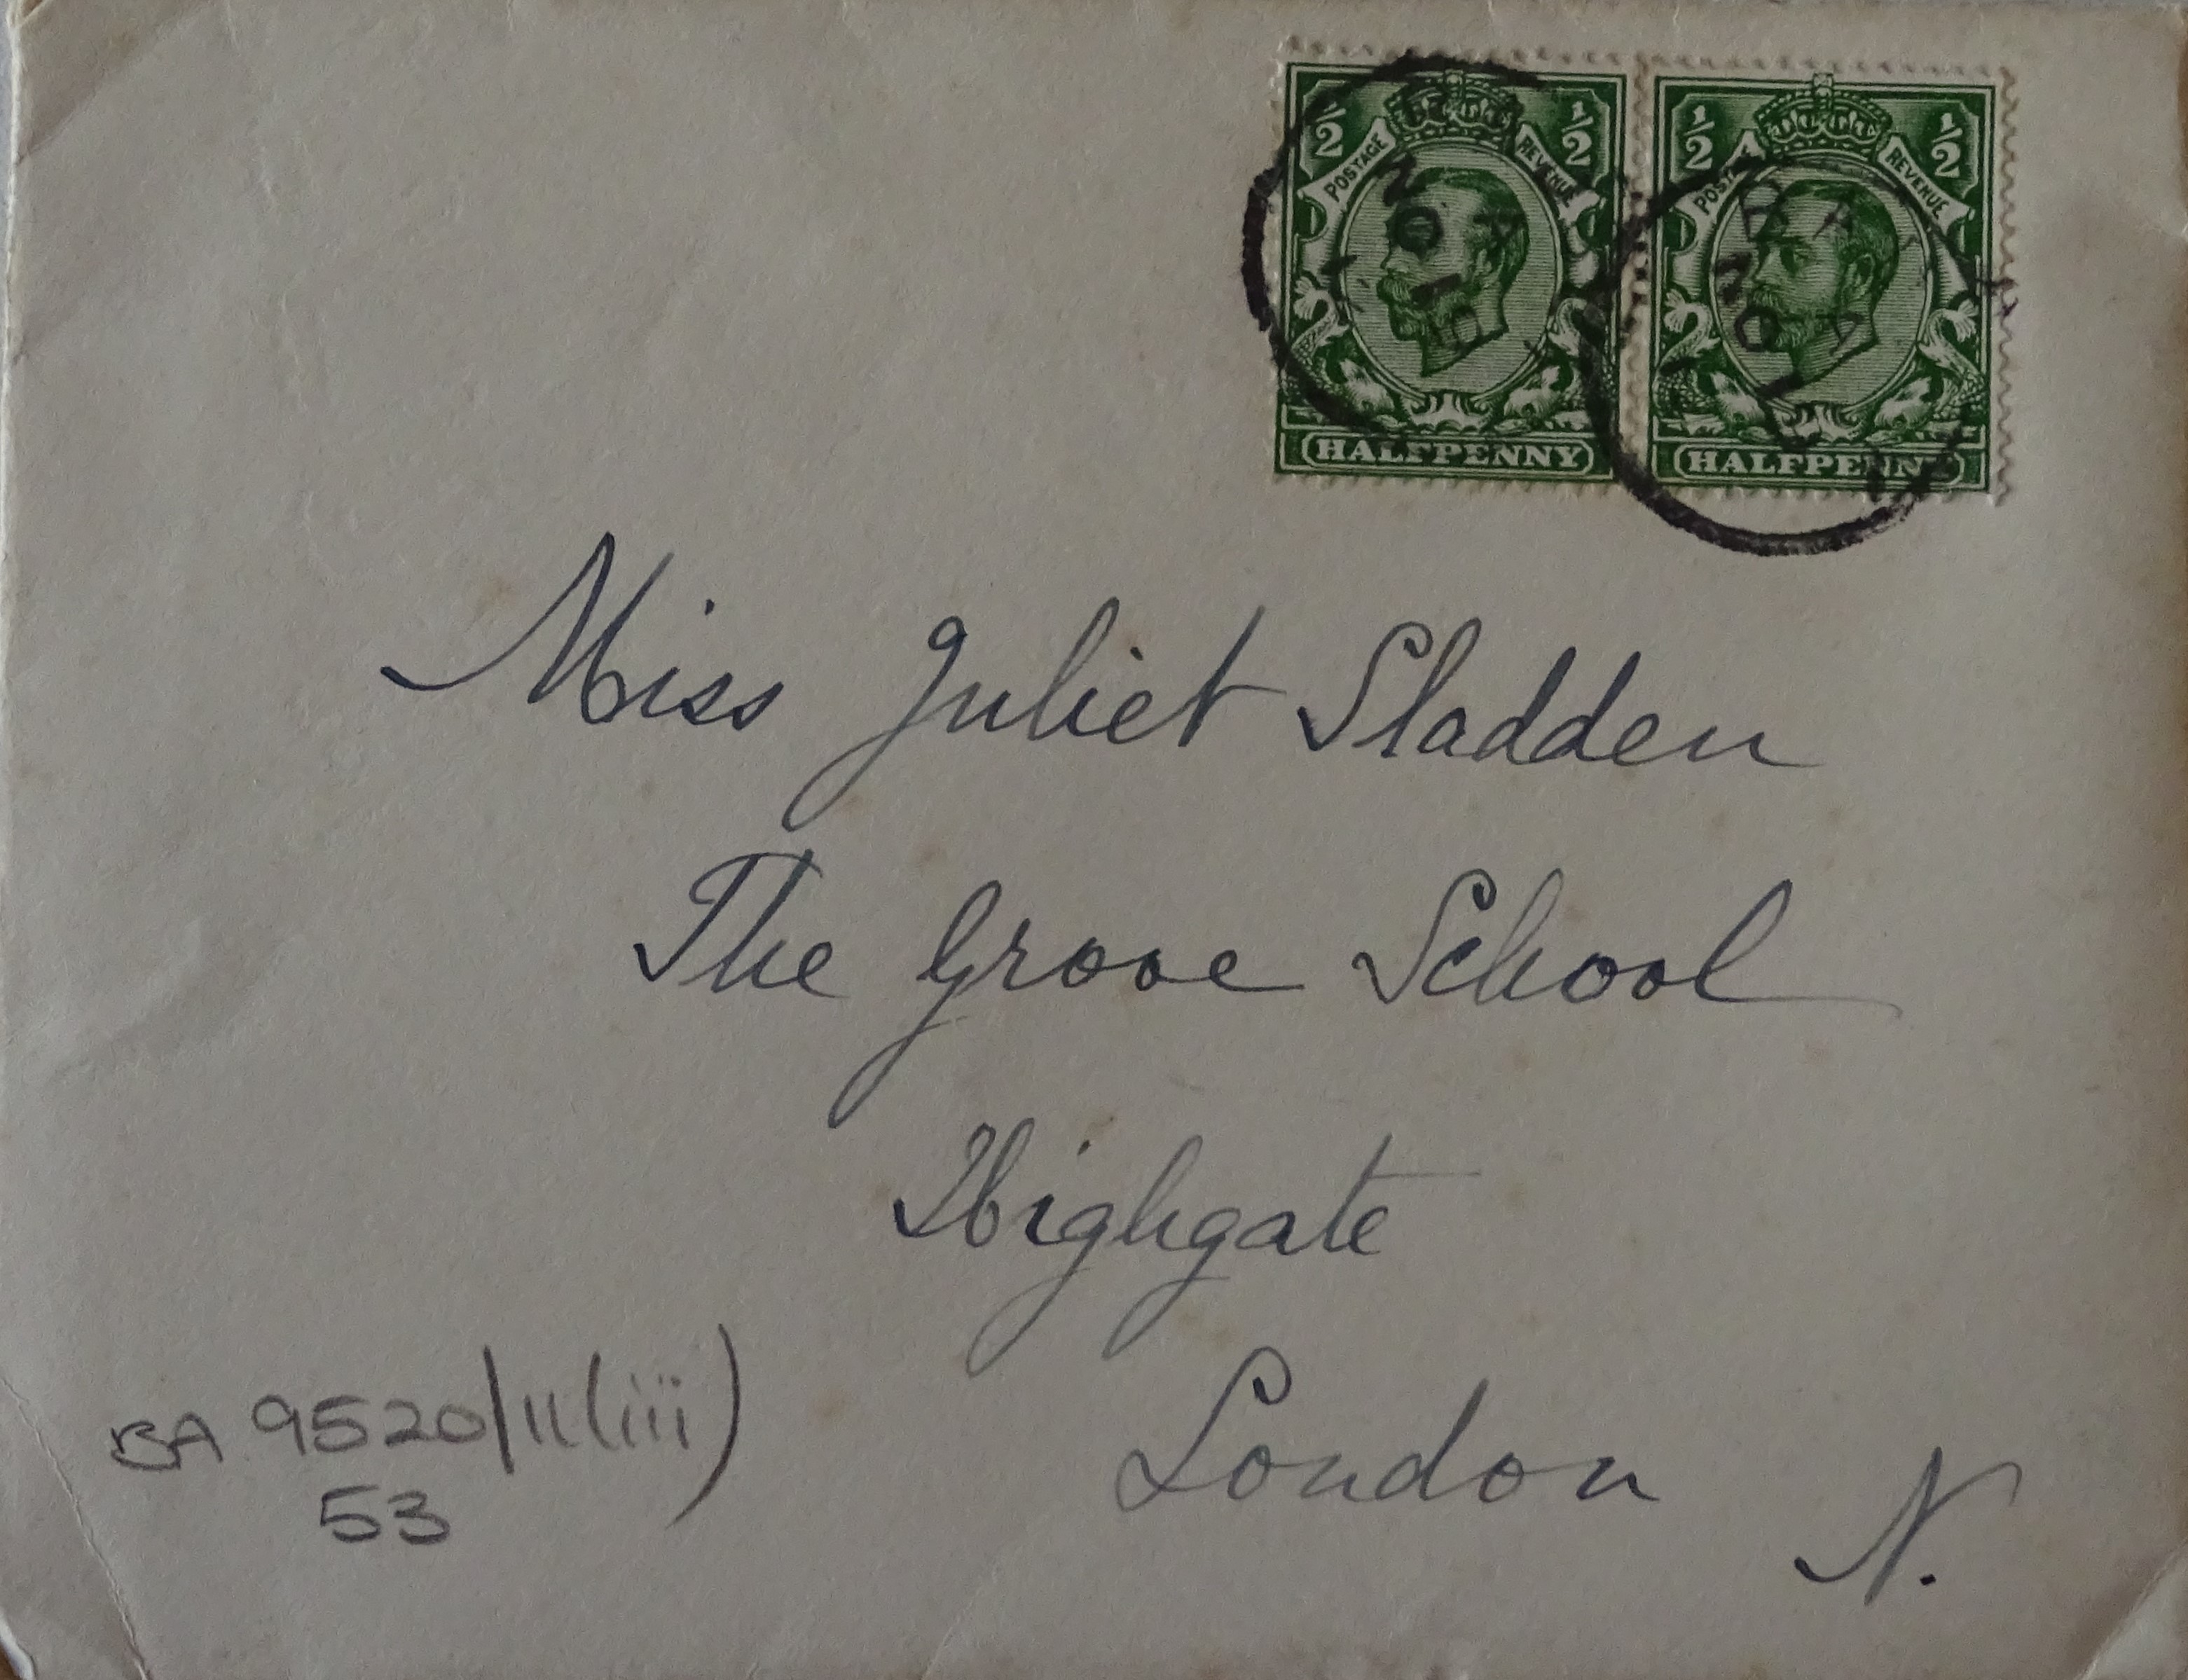 ½ POSTAGE REVENUE ½
HALFPENNY
½ POSTAGE REVENUE ½
HALFPENNY
Miss Juliet Sladden
The Grove School
Highgate
London
N.
BA 9520/11(iii)
53